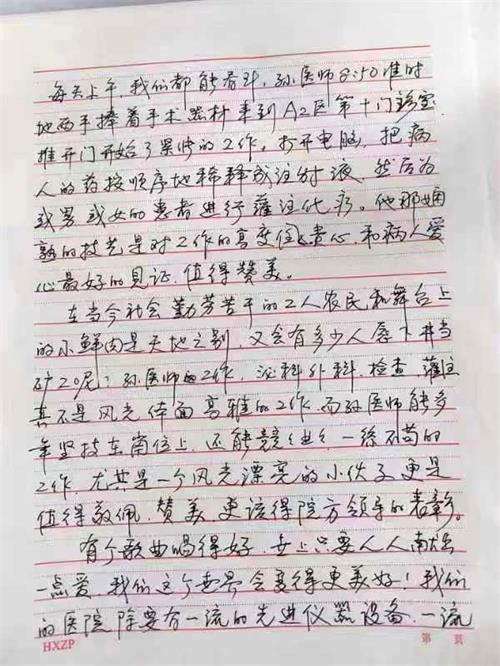 每天上午，我们都能看到，孙医师8:50准时
地两手捧着手术器材来到A2区第十门诊室
推开门开始了紧张的工作。打开电脑，把病
人的药按顺序地稀释成注射液，然后为
或男或女的患者进行灌注化疗。他那娴
熟的技艺是对工作的高度负责心，和病人爱
心最好的见证，值得赞美。
在当今社会勤劳苦干的工人农民和舞台上
的小鲜肉是天地之别，又会有多少人愿下井当
矿工呢？孙医师的工作，泌科外科，检查，灌注
真不是风光体面高雅的工作，而孙医师能多
年坚持在岗位上，还能兢兢业业，一丝不苟的
工作，尤其是一个风光漂亮的小伙子更是
值得敬佩，赞美，更该得院方领导的表彰。
有个歌曲唱得好，世上只要人人献出
一点爱，我们这个世界会变得更美好！我们
的医院除要有一流的先进仪器设备，一流
HXZP
第 页